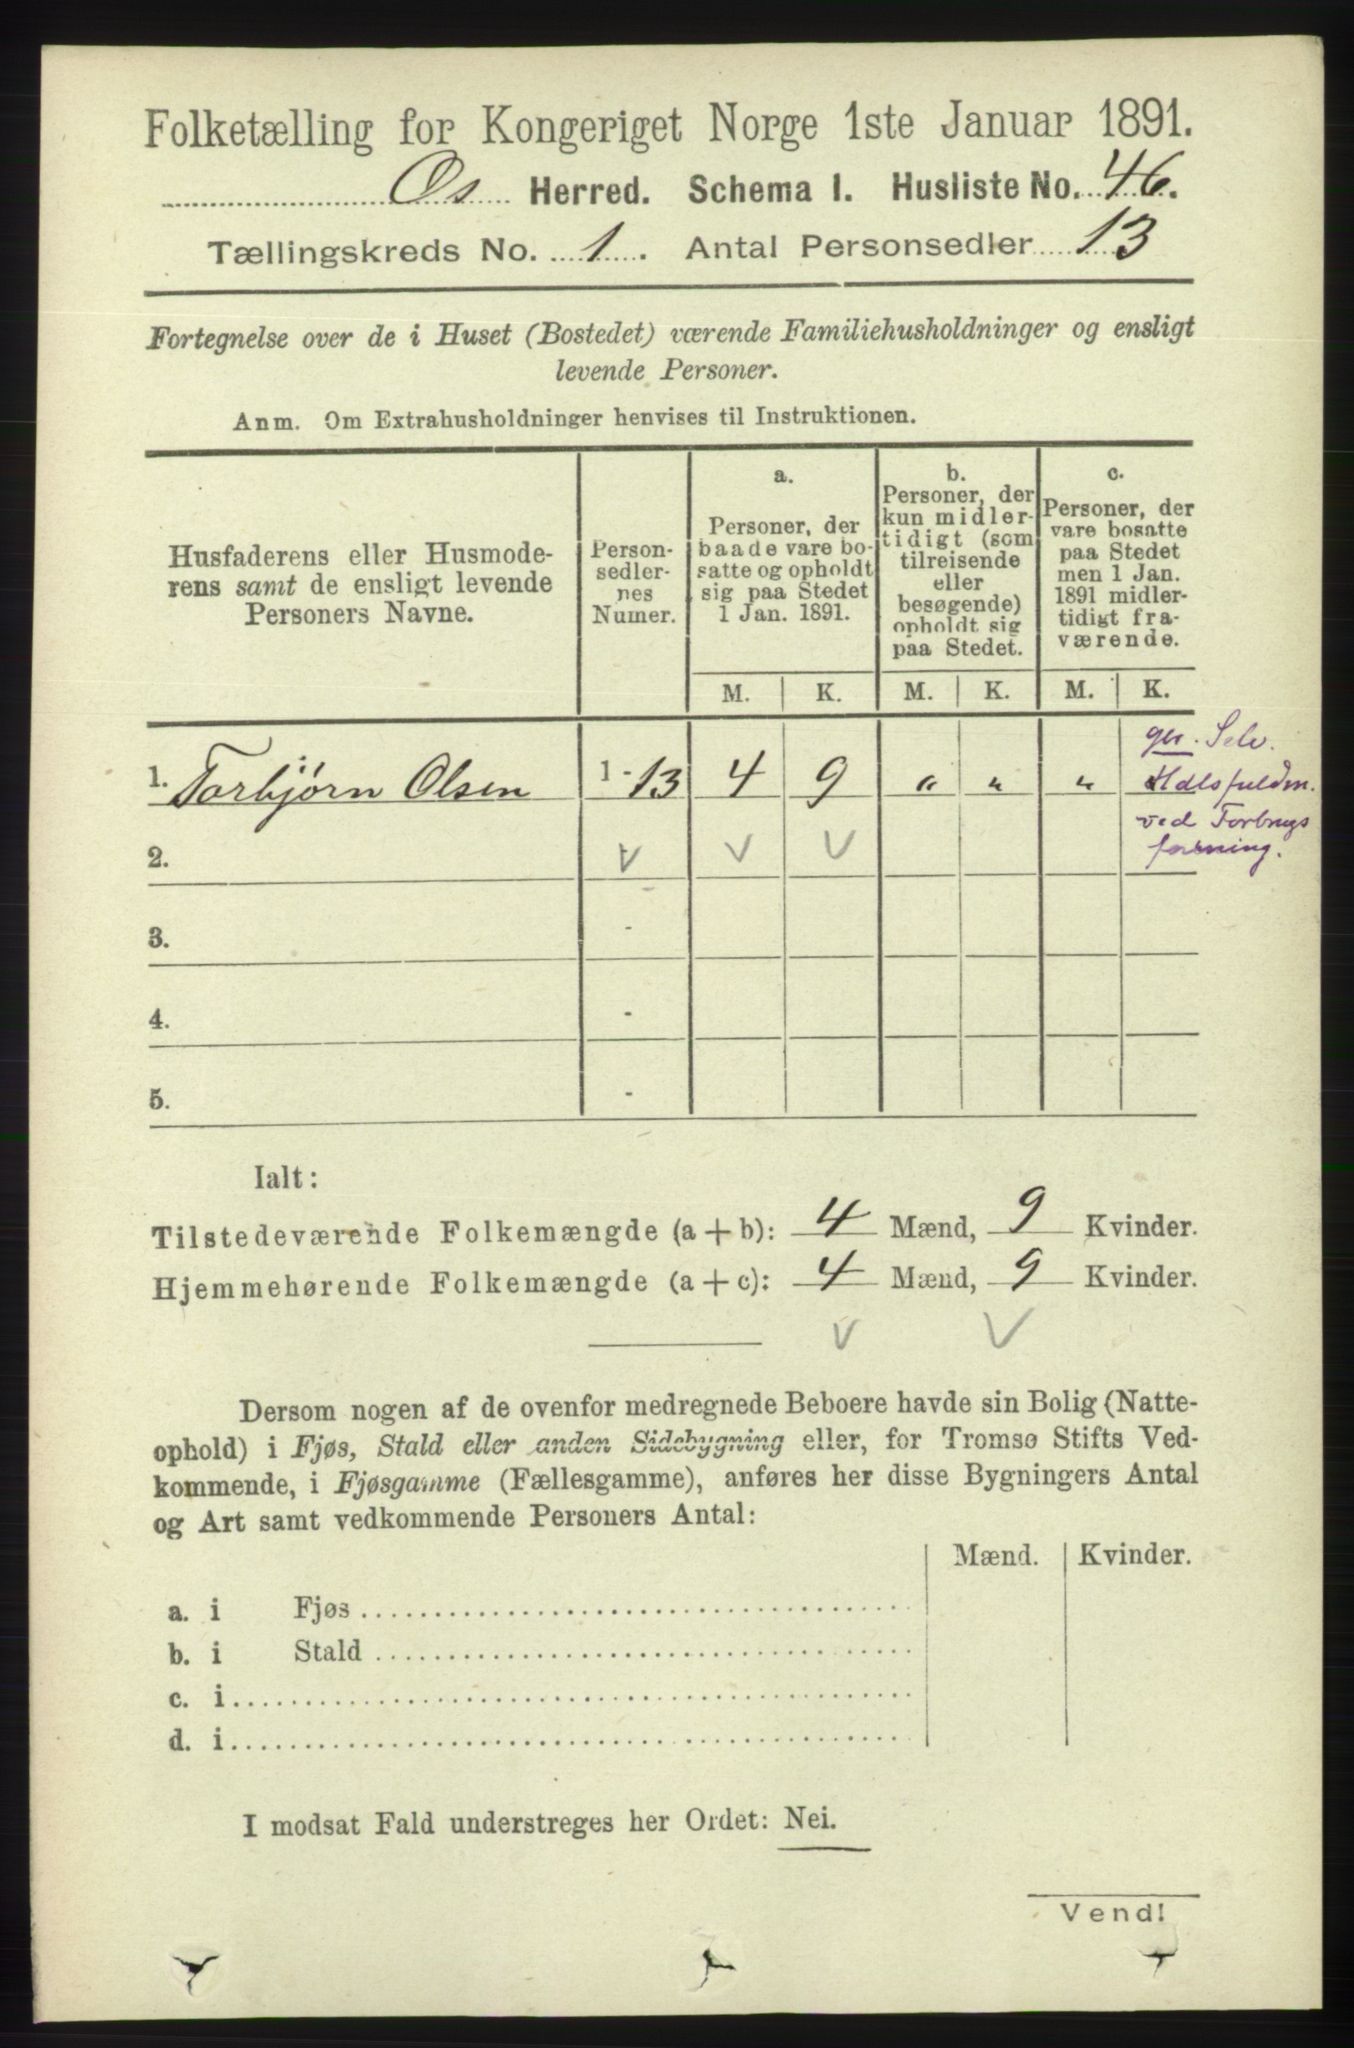 Folketælling for Kongeriget Norge 1ste Januar 1891.
Os Herred. Schema I. Husliste No. 46.
Tællingskreds No. 1. Antal Personsedler 13
Fortegnelse over de i Huset (Bostedet) værende Familiehusholdninger og ensligt
levende Personer.
Anm. Om Extrahusholdninger henvises til Instruktionen.
Husfaderens eller Husmode-
rens samt de ensligt levende
Personers Navne.
Person-
sedler-
nes
Numer.
a.
Personer, der
baade vare bo-
satte og opholdt
sig paa Stedet
1 Jan. 1891.
b.
Personer, der
kun midler-
tidigt (som
tilreisende
eller
besøgende)
opholdt sig
paa Stedet.
c.
Personer, der
vare bosatte
paa Stedet
men 1 Jan.
1891 midler-
tidigt fra-
værende.
M. K. M. K. M. K.
1. Torbjørn Olsen 1-13 4 9 " " "
Selv.
ved Torbrugs
2.
3. -
4. -
5. -
Ialt:
Tilstedeværende Folkemængde (a+b): 4 Mænd, 9 Kvinder.
Hjemmehørende Folkemængde (a+c): 4 Mænd, 9 Kvinder.
Dersom nogen af de ovenfor medregnede Beboere havde sin Bolig (Natte-
ophold) i Fjøs, Stald eller anden Sidebygning eller, for Tromsø Stifts Ved-
kommende, i Fjøsgamme (Fællesgamme), anføres her disse Bygningers Antal
og Art samt vedkommende Personers Antal:
Mænd. Kvinder.
a. i Fjøs
b. i Stald
c. i
d. i
I modsat Fald understreges her Ordet: Nei.
Vend!